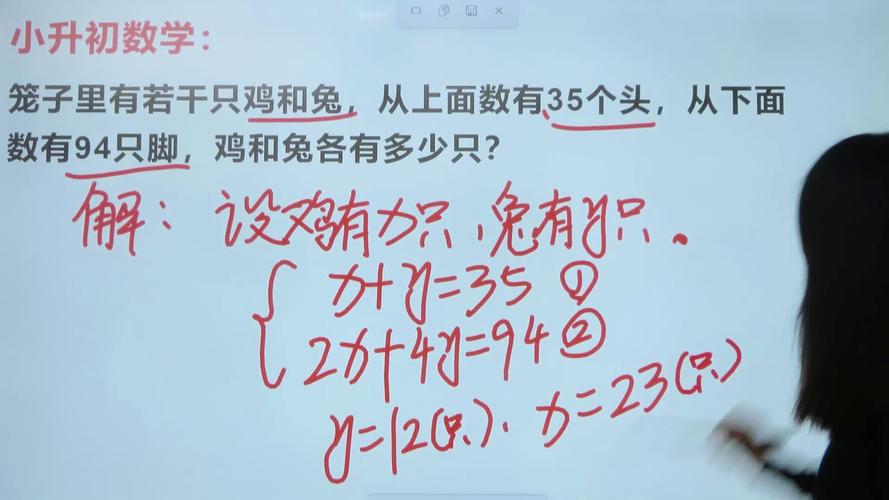 小升初数学：
笼子里有若干只鸡和兔，从上面数有35个头，从下面
数有94只脚，鸡和兔各有多少只？
解：设鸡有x只，兔有y只。
x+y=35 ①
2x+4y=94 ②
y=12(只). x=23(只)